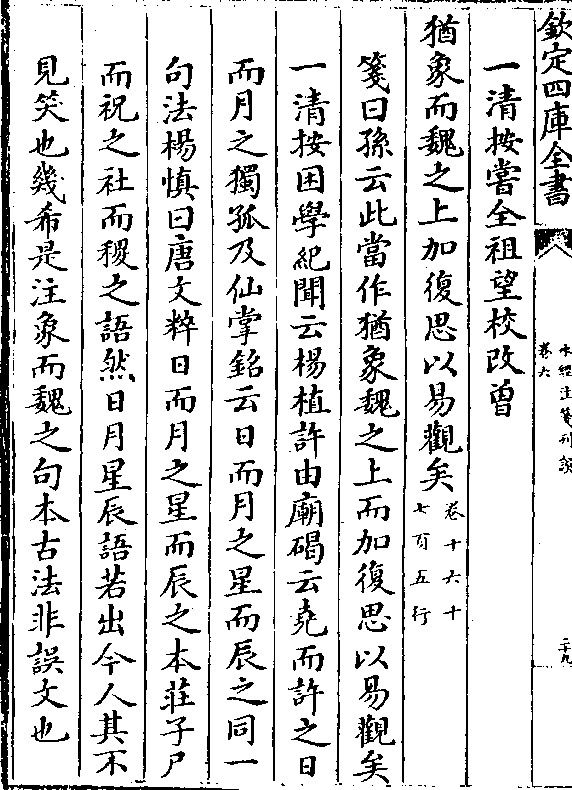 欽定四庫全書
水經注箋刊誤
卷六
二十九
一清按嘗全祖望校改曾
猶象而魏之上加復思以易觀矣
卷十六十
七頁五行
箋曰孫云此當作猶象魏之上而加復思以易觀矣
一清按困學紀聞云楊植許由廟碣云堯而許之日
而月之獨孤及仙掌銘云日而月之星而辰之同一
句法楊慎曰唐文粹日而月之星而辰之本莊子尸
而祝之社而稷之語然日月星辰語若出今人其不
見笑也幾希是注象而魏之句本古法非誤文也